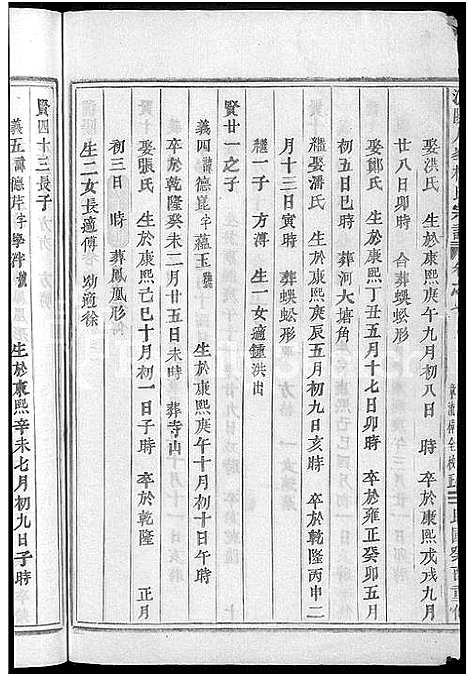 娶洪氏 生於康熙庚午九月初八日 時 卒於康熙戊戌九月
廿八日卯時 合葬蜈蚣形
娶鄭氏 生於康熙丁丑五月十七日卯時 卒於雍正癸卯五月
初八日午時 葬河大塘角
繼娶潘氏 生於康熙庚辰五月初九日亥時 卒於乾隆丙申二
月 日 時 葬蜈蚣形
繼一子 生一女適鍾洪出
賢廿一之子
義四諱德崑字蘊玉號 生於康熙庚午十月初十日午時
卒於乾隆癸未二月廿五日未時 葬寺山
娶張氏 生於康熙己巳十月初一日子時 卒於乾隆 正月
初三日 時 葬鳳凰形
生二女長適傅 幼適徐
賢四十三長子
義五諱德芹字學泮號 生於康熙辛未七月初九日子時